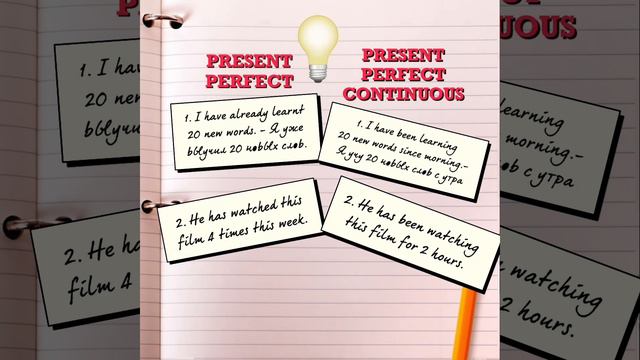 PRESENT
PERFECT
PRESENT
PERFECT
CONTINUOUS
1. I have already learnt
20 new words. - Я уже
выучил 20 новых слов.
1. I have been learning
20 new words since morning.-
Я учу 20 новых слов с утра
2. He has watched this
film 4 times this week.
2. He has been watching
this film for 2 hours.